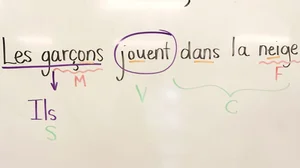 Les garçons jouent dans la neige
M V F
Ils C
S